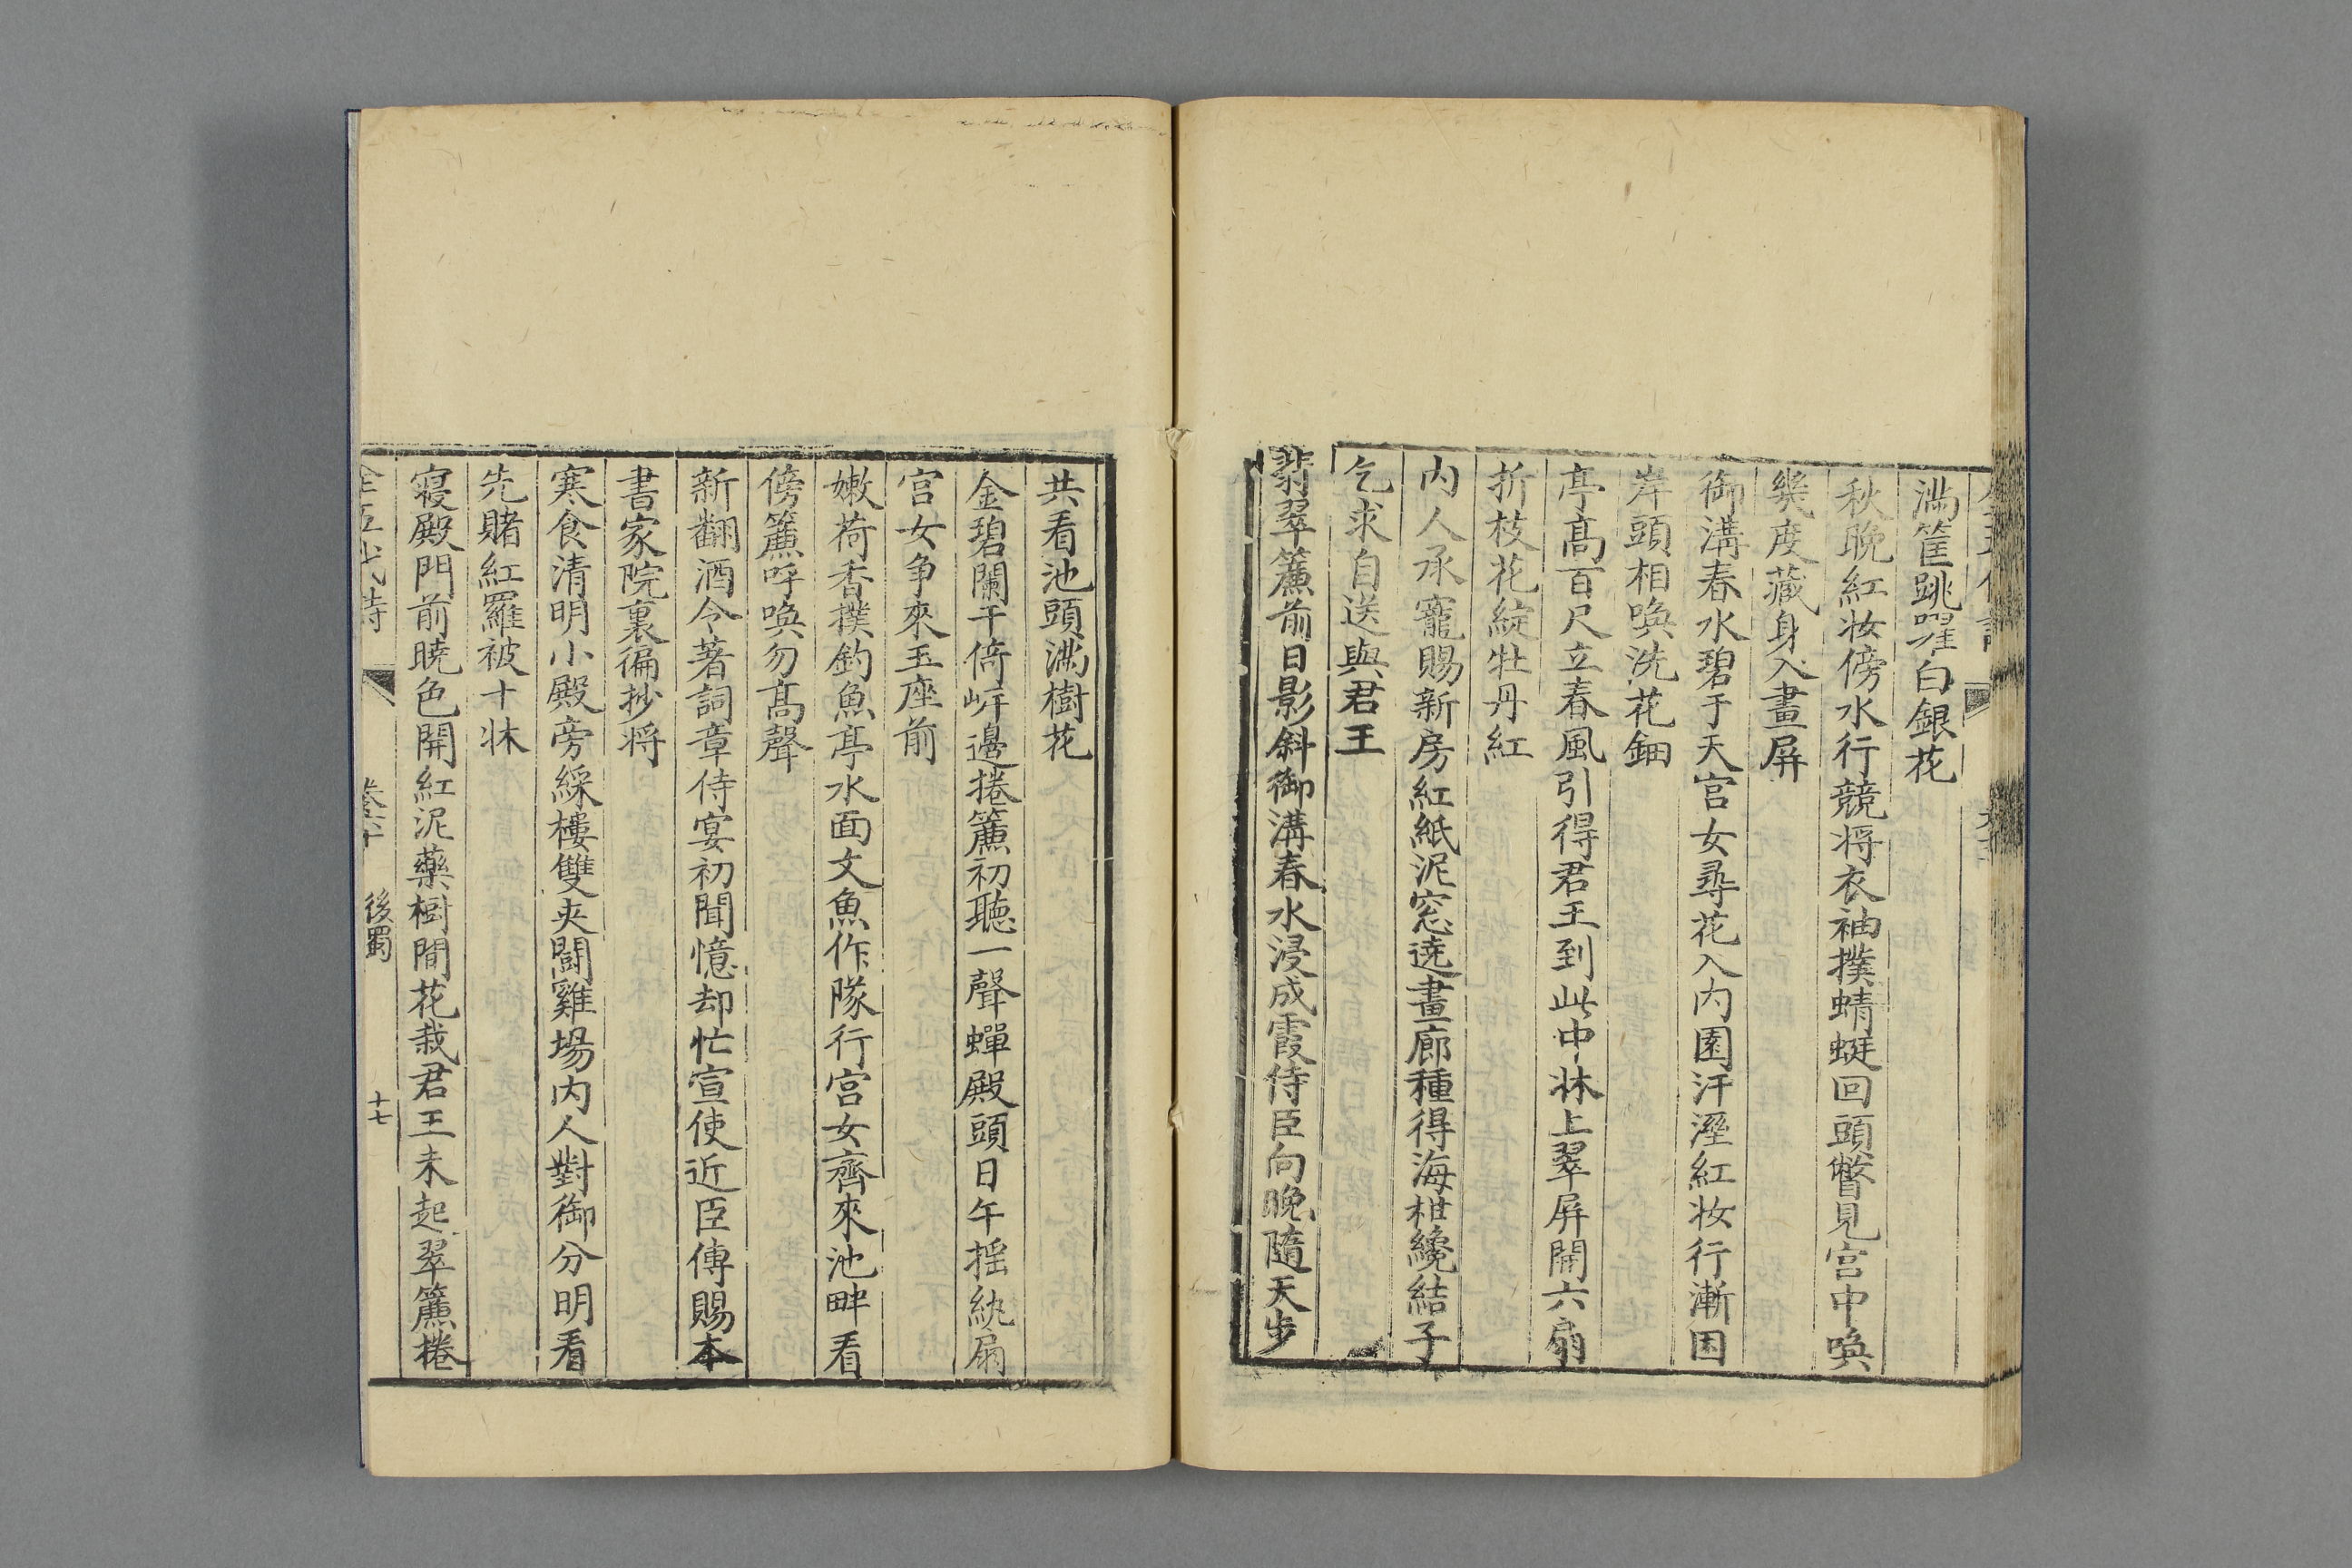 滿筐跳躍白銀花
秋晚紅妝傍水行競将衣袖撲蜻蜓回頭瞥見宫中喚
幾度藏身入畫屏
御溝春水碧于天宫女尋花入内園汗溼紅妝行漸困
岸頭相喚洗花鈿
亭髙百尺立春風引得君王到此中牀上翠屏開六扇
折枝花綻牡丹紅
内人承寵賜新房紅紙泥窓遶畫廊種得海柑纔結子
乞求自送與君王
翡翠簾前日影斜御溝春水浸成霞侍臣向晚隨天步
共看池頭滿樹花
金碧闌干倚岸邊捲簾初聽一聲蟬殿頭日午摇紈扇
宫女争來玉座前
嫩荷香撲釣魚亭水面文魚作隊行宫女齊來池畔看
傍簾呼喚勿髙聲
新翻酒令著詞章侍宴初聞憶却忙宣使近臣傳賜本
書家院裏徧抄将
寒食清明小殿旁綵樓雙夹鬬雞場内人對御分明看
先賭紅羅被十牀
寝殿門前曉色開紅泥藥樹間花栽君王未起翠簾捲
全五代詩 後蜀 十七